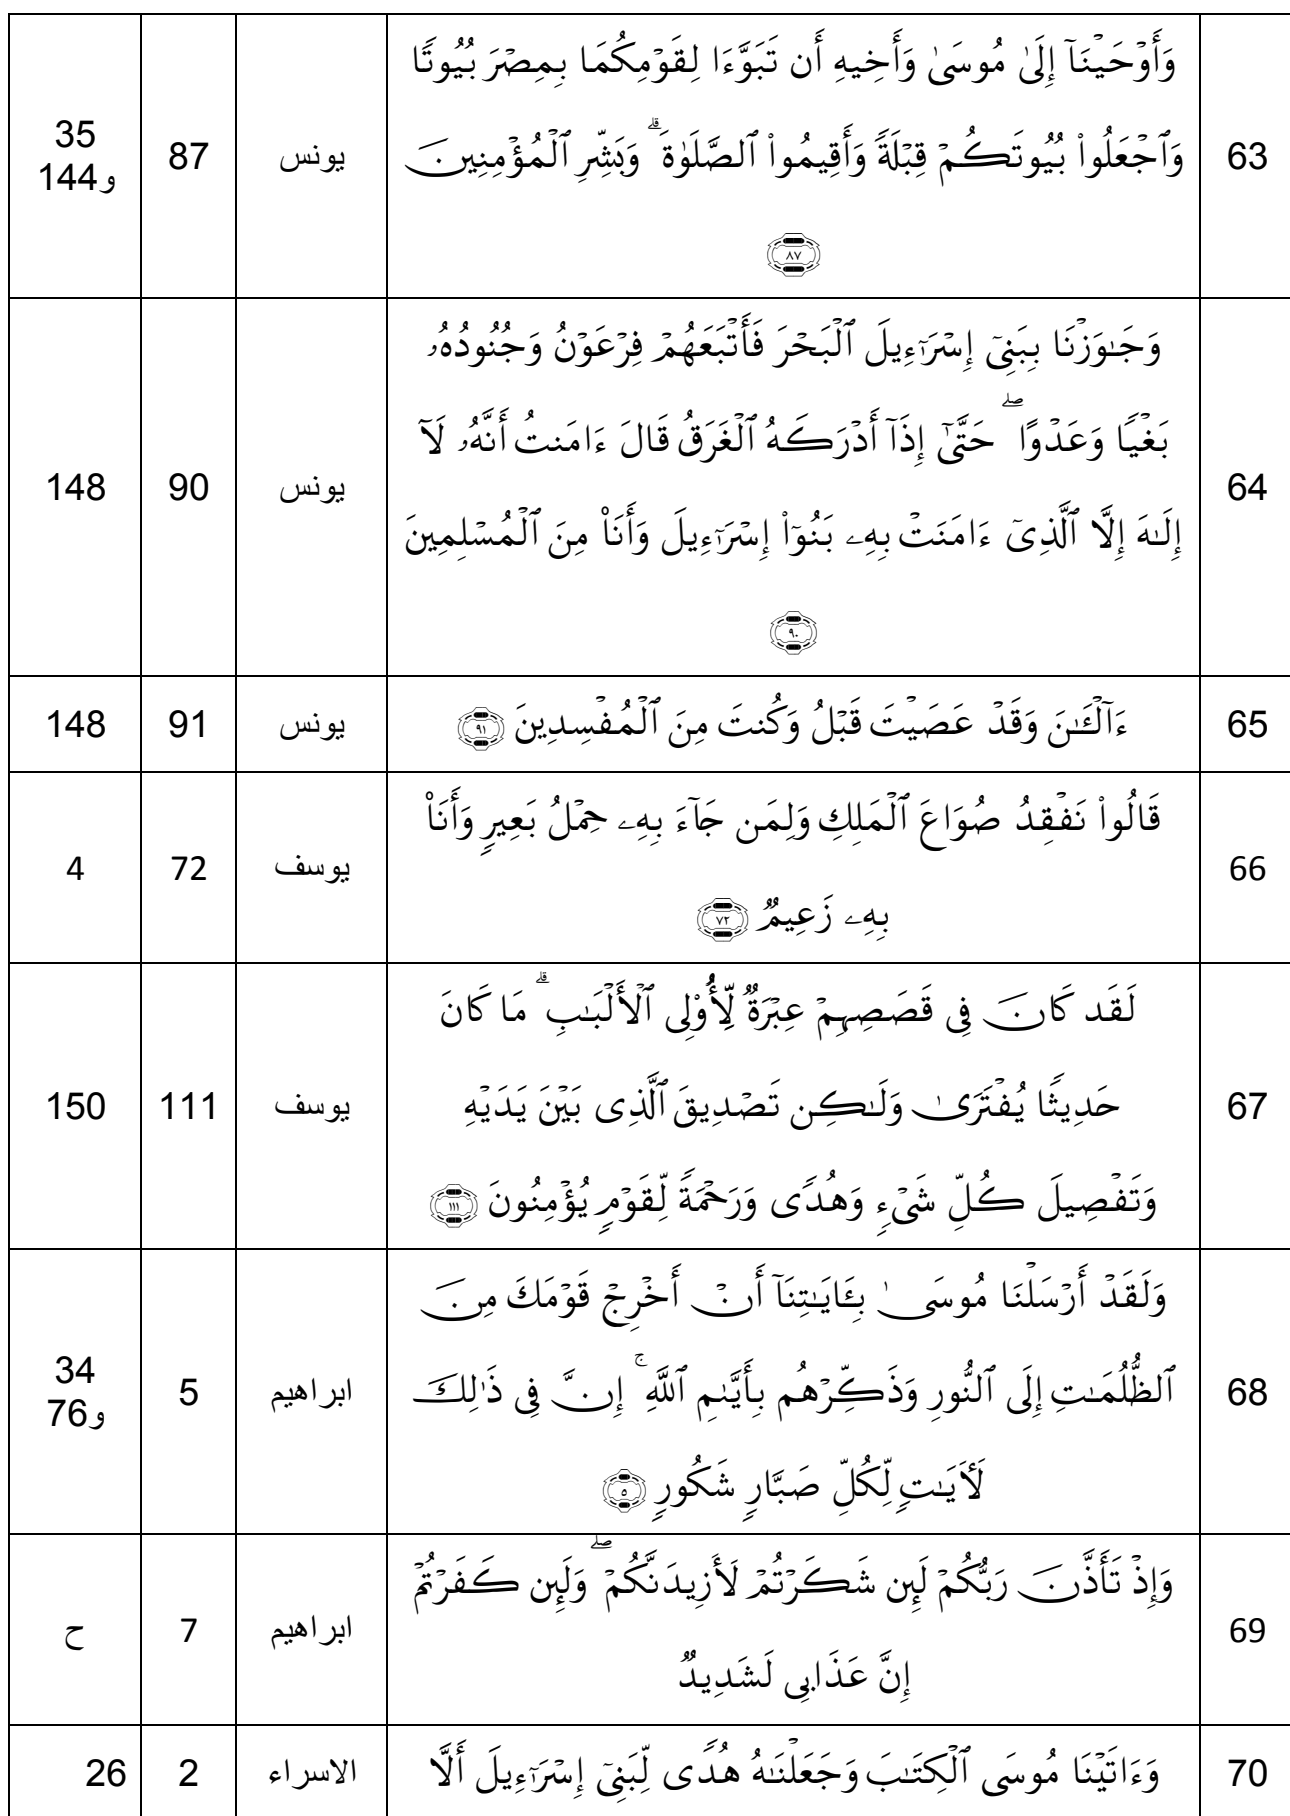 63 وَأَوْحَيْنَآ إِلَىٰ مُوسَىٰ وَأَخِيهِ أَن تَبَوَّءَا لِقَوْمِكُمَا بِمِصْرَ بُيُوتًا
وَٱجْعَلُوا۟ بُيُوتَكُمْ قِبْلَةً وَأَقِيمُوا۟ ٱلصَّلَوٰةَ ۗ وَبَشِّرِ ٱلْمُؤْمِنِينَ
٨٧
يونس 87 35
و144
64 وَجَـٰوَزْنَا بِبَنِىٓ إِسْرَٰٓءِيلَ ٱلْبَحْرَ فَأَتْبَعَهُمْ فِرْعَوْنُ وَجُنُودُهُۥ
بَغْيًا وَعَدْوًا ۖ حَتَّىٰٓ إِذَآ أَدْرَكَهُ ٱلْغَرَقُ قَالَ ءَامَنتُ أَنَّهُۥ لَآ
إِلَـٰهَ إِلَّا ٱلَّذِىٓ ءَامَنَتْ بِهِۦ بَنُوٓا۟ إِسْرَٰٓءِيلَ وَأَنَا۠ مِنَ ٱلْمُسْلِمِينَ
٩٠
يونس 90 148
65 ءَآلْـَٔـٰنَ وَقَدْ عَصَيْتَ قَبْلُ وَكُنتَ مِنَ ٱلْمُفْسِدِينَ ٩١ يونس 91 148
66 قَالُوا۟ نَفْقِدُ صُوَاعَ ٱلْمَلِكِ وَلِمَن جَآءَ بِهِۦ حِمْلُ بَعِيرٍ وَأَنَا۠
بِهِۦ زَعِيمٌ ٧٢
يوسف 72 4
67 لَقَدْ كَانَ فِى قَصَصِهِمْ عِبْرَةٌ لِّأُو۟لِى ٱلْأَلْبَـٰبِ ۗ مَا كَانَ
حَدِيثًا يُفْتَرَىٰ وَلَـٰكِن تَصْدِيقَ ٱلَّذِى بَيْنَ يَدَيْهِ
وَتَفْصِيلَ كُلِّ شَىْءٍ وَهُدًى وَرَحْمَةً لِّقَوْمٍ يُؤْمِنُونَ ١١١
يوسف 111 150
68 وَلَقَدْ أَرْسَلْنَا مُوسَىٰ بِـَٔايَـٰتِنَآ أَنْ أَخْرِجْ قَوْمَكَ مِنَ
ٱلظُّلُمَـٰتِ إِلَى ٱلنُّورِ وَذَكِّرْهُم بِأَيَّىٰمِ ٱللَّهِ ۚ إِنَّ فِى ذَٰلِكَ
لَـَٔايَـٰتٍ لِّكُلِّ صَبَّارٍ شَكُورٍ ٥
ابراهيم 5 34
و76
69 وَإِذْ تَأَذَّنَ رَبُّكُمْ لَئِن شَكَرْتُمْ لَأَزِيدَنَّكُمْ ۖ وَلَئِن كَفَرْتُمْ
إِنَّ عَذَابِى لَشَدِيدٌ
ابراهيم 7 ح
70 وَءَاتَيْنَا مُوسَى ٱلْكِتَـٰبَ وَجَعَلْنَـٰهُ هُدًى لِّبَنِىٓ إِسْرَٰٓءِيلَ أَلَّا الاسراء 2 26